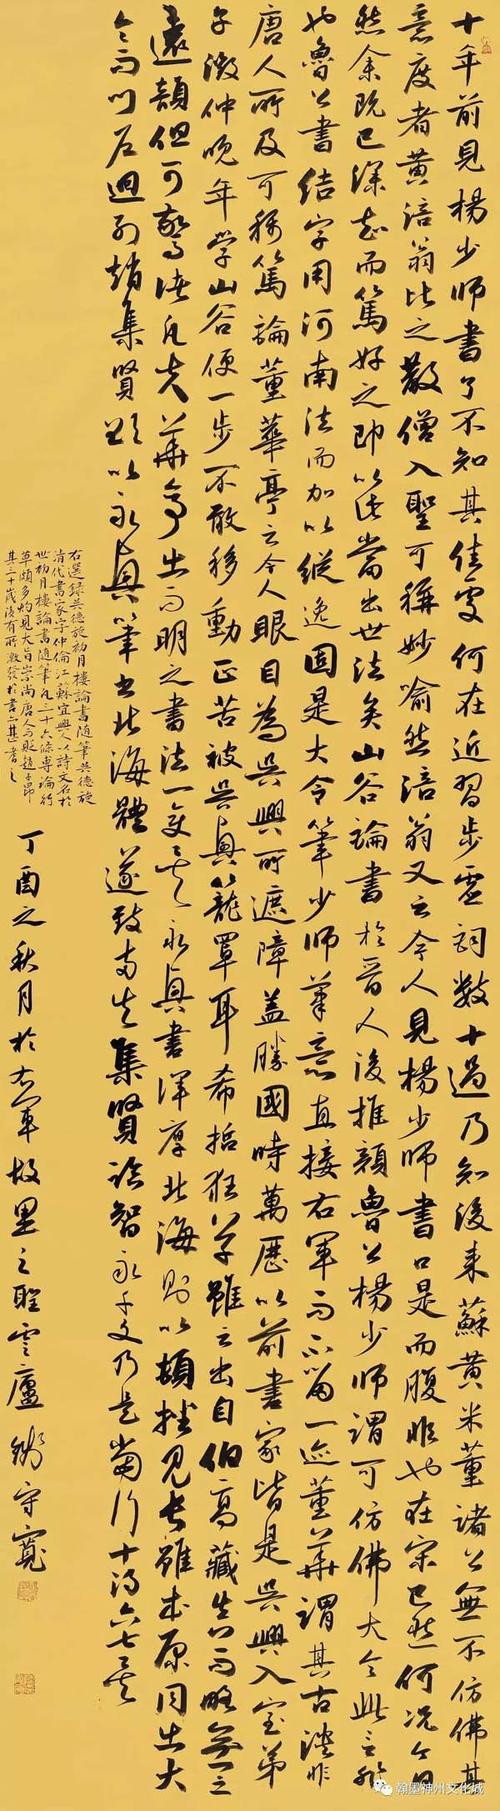 十年前見楊少師書了不知其佳處何在近習步虛詞數十過乃知後來蘇黃米董諸公無不仿佛其
意度者黃涪翁比之散僧入聖可稱妙喻然涪翁又云今人見楊少師書口是而腹非也在宋已然何況今日
然余既已深知而篤好之即以此當出世法矣山谷論書於晉人後推顏魯公楊少師謂可仿佛大令此言非
也魯公書結字用河南法而加以縱逸固是大令筆少師筆意直接右軍而不留一迹董華謂其古淡非
唐人所及可稱篤論董華亭云今人眼目為吳興所遮障蓋勝國時萬歷以前書家皆是吳興入室弟
子徵仲晚年學山谷便一步不敢移動正苦被吳興籠罩耳希哲狂草雖云出自伯高藏真而略無之
遠韻但可驚諸凡夫華亭出而明之書法一變矣永興書渾厚北海則以頓挫見長雖本原同出大
令而門戶迥別趙集賢欲以永興筆書北海體遂致兩失集賢臨智永千文乃是當行十得六七矣
右選錄吳德旋初月樓論書隨筆吳德旋
清代書家字仲倫江蘇宜興人以詩文名於
世初月樓論書隨筆凡三十六條專論行
草頗多灼見大旨崇尚唐人而貶趙子昂
其三十歲後有所激發於書
丁酉之秋月於右軍故里之聖雲廬 守寬
翰墨神州文化城